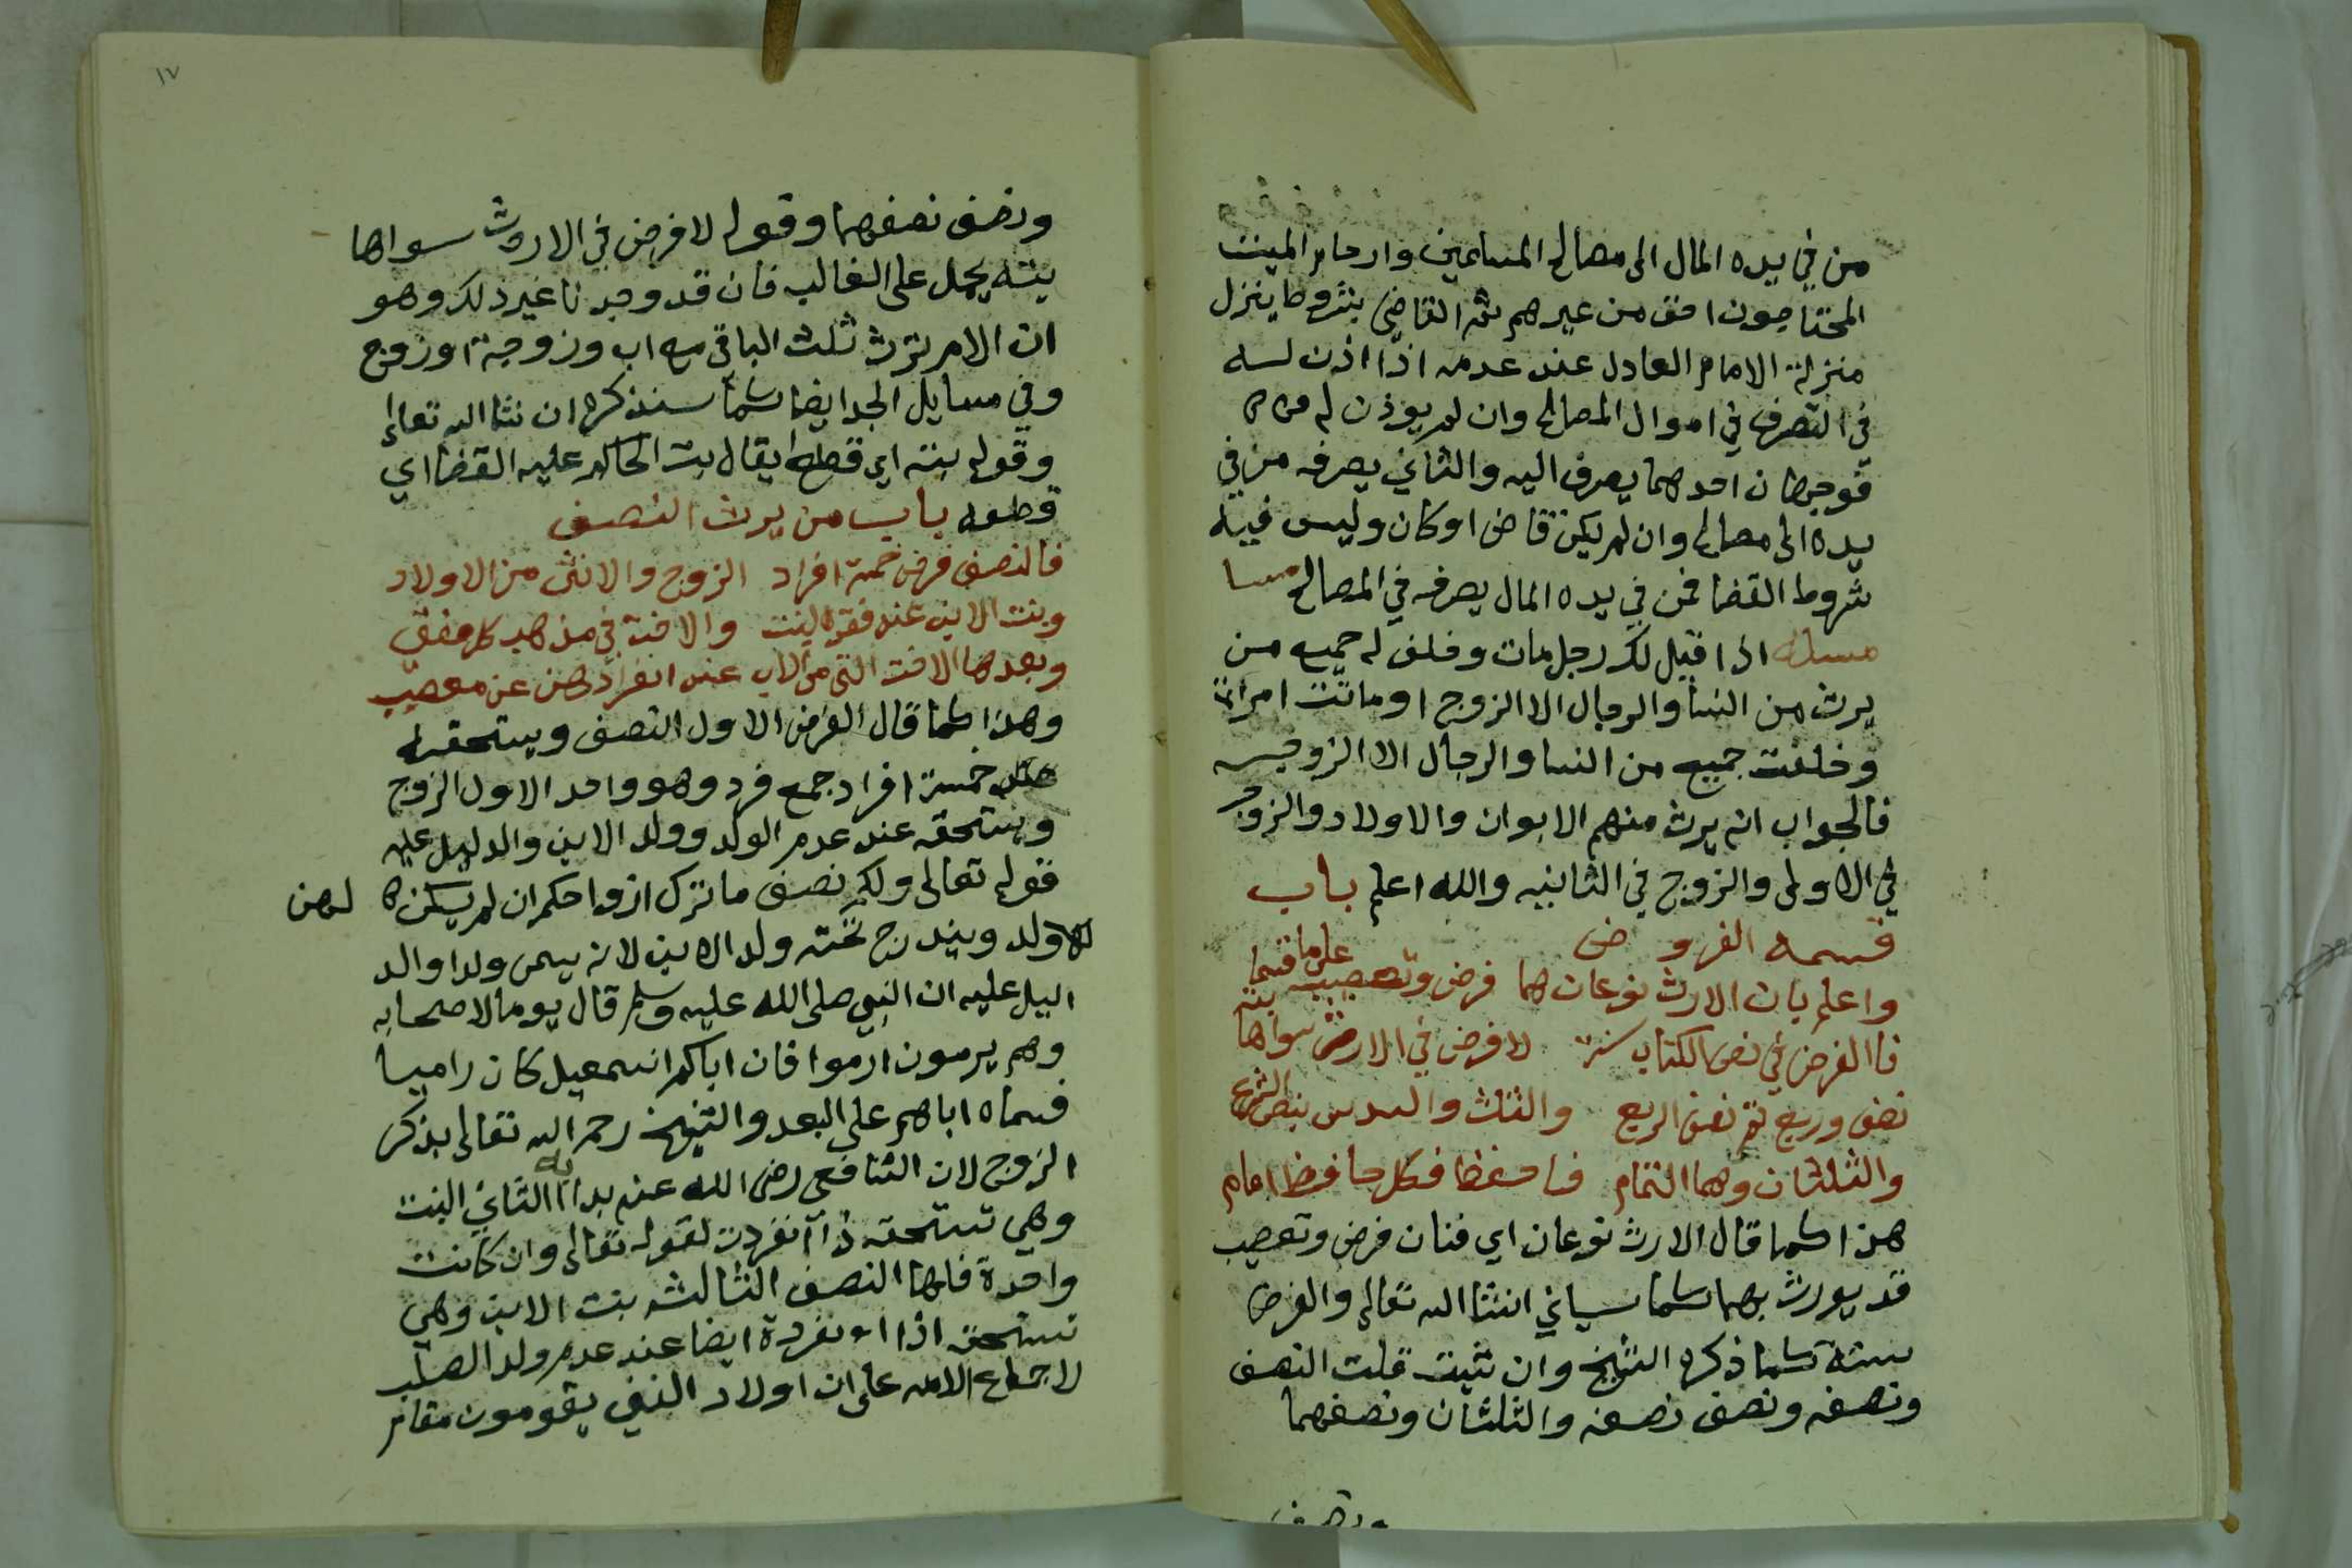 من في يده المال الى مصالح المسلمين وارحام الميت
المحتاجون احق من غيرهم ثم القاضي بشروط ينزل
منزلة الامام العادل عند عدمه اذا اذن له
في التصرف في اموال المصالح وان لم يوذن له
فوجهان احدهما يصرف اليه والثاني يصرفه من في
يده الى مصالح وان لم يكن قاض او كان وليس فيه
شروط القضا فمن في يده المال يصرفه في المصالح
مسئلة اذا قيل لك رجل مات وخلف له جميع من
يرث من النسا والرجال الا الزوج او ماتت امراة
وخلفت جميع من النسا والرجال الا الزوجه
فالجواب انه يرث منهم الابوان والاولاد والزوجه
في الاولى والزوج في الثانيه والله اعلم باب
قسمه الفروض
واعلم بان الارث نوعان هما فرض وتعصيب على ما قسما
فا الفرض في نص الكتاب سته لا فرض في الارث سواها بته
نصف وربع ثم نصف الربع والثلث والسدس بنص الشرع
والثلثان وهما التمام فاحفظ فكل حافظ امام
هذا كما قال الارث نوعان اي فنان فرض وتعصيب
قد يورث بهما كما سياتي انشا الله تعالى والفرض
سته كما ذكره الشيخ وان شيت قلت النصف
ونصفه ونصف نصفه والثلثان ونصفهما
ونصف
١٧
ونصف نصفهما وقوله لا فرض في الارث سواها
بته يحمل على الغالب فان قد وجدنا غير ذلك وهو
ان الام ترث ثلث الباقي مع اب وزوجة او زوج
وفي مسايل الجد ايضا كما سنذكره ان شا الله تعالى
وقوله بته اي قطعا يقال بت الحاكم عليه القضا اي
قطعه باب من يرث النصف
فالنصف فرض خمسة افراد الزوج والانثى من الاولاد
وبنت الابن عند فقد البنت والاخت في مذهب كل مفتي
وبعدها الاخت التي من الاب عند انفرادهن عن معصب
وهذا كما قال الفرض الاول النصف ويستحقه
خمسة افراد جمع فرد وهو واحد الاول الزوج
ويستحقه عند عدم الولد وولد الابن والدليل عليه
قوله تعالى ولكم نصف ما ترك ازواحكم ان لم يكن لهن
ولد ويندرج تحته ولد الابن لانه يسمى ولدا والد
اليل عليه ان النبي صلى الله عليه وسلم قال يوما لاصحابه
وهم يرمون ارموا فان اباكم اسمعيل كان راميا
فسماه اباهم على البعد والشيخ رحمه الله تعالى بذكر
الزوج لان الشافعي رضى الله عنه بدا به الثاني البنت
وهي تستحقه ذا انفردت لقوله تعالى وان كانت
واحدة فلها النصف الثالثه بنت الابن وهي
تستحقه اذا انفردة ايضا عند عدم ولد الصلب
لاجماع الامه على ان اولاد البني يقومون مقام